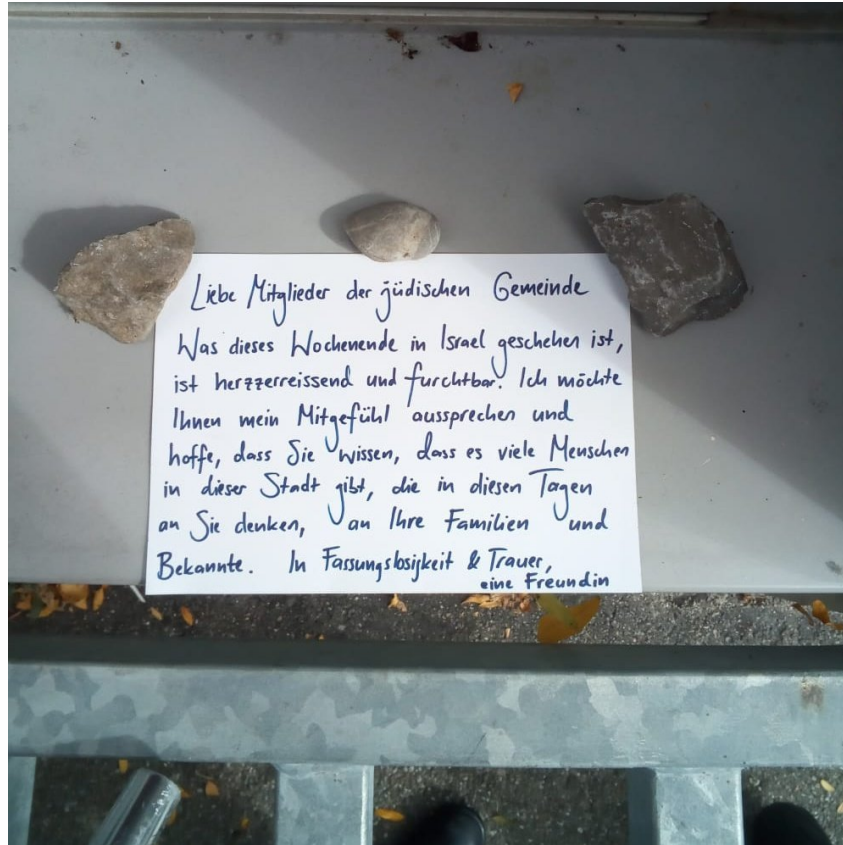 Liebe Mitglieder der jüdischen Gemeinde
Was dieses Wochenende in Israel geschehen ist,
ist herzzerreissend und furchtbar. Ich möchte
Ihnen mein Mitgefühl aussprechen und
hoffe, dass Sie wissen, dass es viele Menschen
in dieser Stadt gibt, die in diesen Tagen
an Sie denken, an Ihre Familien und
Bekannte. In Fassungslosigkeit & Trauer,
eine Freundin